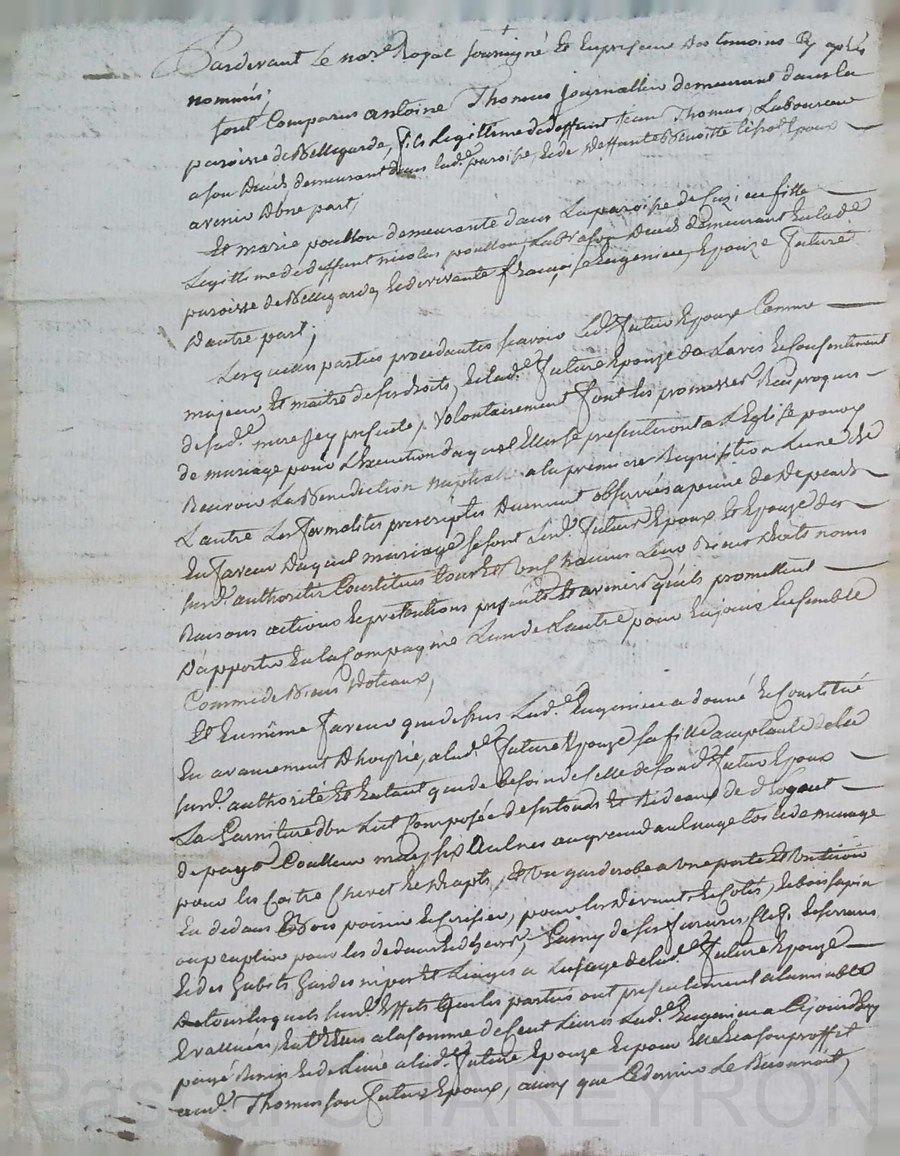 Pardevant le no.re Royal soussigné et en presence des temoins cy après
nommés,
sont comparus antoine Thomas journallier demeurant dans la
paroisse de Bellegarde, fils legittime de deffunt Jean Thomas, Laboureur
a son decés demeurant dans lad.e paroisse, et de deffunte Benoitte Epoux
avenir d'une part,
Et marie poullon demeurante dans La paroisse de fille
Legittime de deffunt nicolas poullon a son decés demeurant en lad.e
paroisse de Bellegarde, et de vivante françoise Eugenieu, Epouze future
d'autre part,
Lesquelles parties procedantes scavoir led.t futur Epoux comme
majeur et maitre de ses droits, et lad.e future Epouze de L'avis et consentement
de sad.e mere jcy presente, volontairement font les promesses Reciproques
de mariage pour L'execution duquel Elles se presenteront a L'Eglise pour y
Recevoir La Benediction nuptiale a la premiere Requisition L'une de
L'autre Les formalités prescriptes duement observées a peine de depends
En faveur duquel mariage se sont Lesd. futurs Epoux et Epouze des
susd. authorités Constitués tous et uns chacuns Leurs Biens droits noms
Raisons actions et pretentions presents et avenir qu'ils promettent
d'apporter en la Compagnie L'un de L'autre pour en jouir Ensemble
Comme de Biens dotaux,
Et En même faveur que dessus Lad.e Eugenieu a donné et Constitué
En avancement d'hoyrie, a lad.e future Epouze sa fille acceptante de la
susd. authorité Et En tant que de besoin de celle de sond. futur Epoux
La Garniture d'un Lit Composée de et Rideaux de
de pays Coulleur six Aulnes au grand aulnage toile de menage
pour les Chevet et draps, et Un garderobe a Une porte et Un tiroir
En dedans Bois poirier et Cerisier, pour les devant et Cotés, et bois sapin
ou peuplier pour les dedans et derrier, Garny de ses ferrures, clef, et serrures
Et des habits hardes nipes et Linges a L'usage de lad.e future Epouze
De tous lesquels susd. Effets que les parties ont presentement a l'amiable
Evallués, Entr'Elles a la somme de Cent Livres Lad.e Eugenieu a Cejourd'huy
payé Remis et delivré a lad.e future Epouze et pour Elle et a son proffit
aud. Thomas son futur Epoux, ainsy que Ce dernier Le Reconnoit,
Pascal CHAREYRON